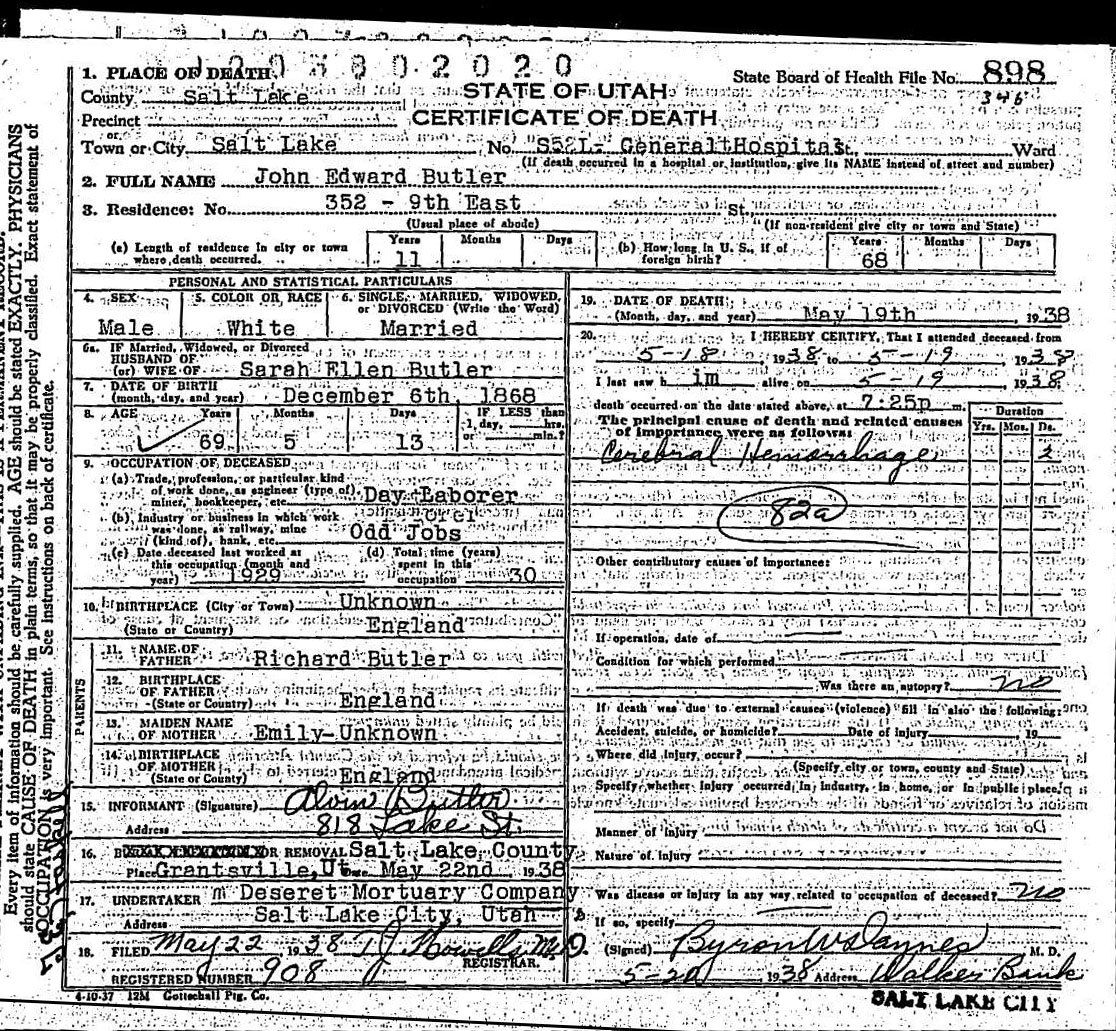 1 2 0 3 8 0 2 0 2 0
State Board of Health File No. 898
346
STATE OF UTAH
CERTIFICATE OF DEATH
1. PLACE OF DEATH
County Salt Lake
Precinct
or
Town or City Salt Lake No. General Hospital St., Ward
(If death occurred in a hospital or institution, give its NAME instead of street and number)
2. FULL NAME John Edward Butler
3. Residence: No. 352 - 9th East St.
(Usual place of abode) (If non-resident give city or town and State)
(a) Length of residence in city or town where death occurred. Years 11 Months Days
(b) How long in U. S., if of foreign birth? Years 68 Months Days
PERSONAL AND STATISTICAL PARTICULARS
4. SEX Male
5. COLOR OR RACE White
6. SINGLE, MARRIED, WIDOWED, or DIVORCED (Write the Word) Married
6a. IF Married, Widowed, or Divorced
HUSBAND OF
(or) WIFE OF Sarah Ellen Butler
7. DATE OF BIRTH
(month, day, and year) December 6th, 1868
8. AGE Years 69 Months 5 Days 13 IF LESS than 1 day, hrs. or min.?
9. OCCUPATION OF DECEASED
(a) Trade, profession, or particular kind of work done, as engineer (type of), miner, bookkeeper, etc. Day Laborer
(b) Industry or business in which work was done, as railway, mine (kind of), bank, etc. Odd Jobs
(c) Date deceased last worked at this occupation (month and year) 1929
(d) Total time (years) spent in this occupation 30
10. BIRTHPLACE (City or Town) Unknown
(State or Country) England
PARENTS
11. NAME OF FATHER Richard Butler
12. BIRTHPLACE OF FATHER
(State or Country) England
13. MAIDEN NAME OF MOTHER Emily-Unknown
14. BIRTHPLACE OF MOTHER
(State or Country) England
15. INFORMANT (Signature) Alvin Butler
Address 818 Lake St.
16. OR REMOVAL Salt Lake County
Place Grantsville, Ut Date May 22nd 1938
17. UNDERTAKER Deseret Mortuary Company
Address Salt Lake City, Utah
18. FILED May 22 1938 T J Howells M.D.
REGISTRAR.
REGISTERED NUMBER 908
4-10-37 12M Gottschall Ptg. Co.
19. DATE OF DEATH
(Month, day, and year) May 19th, 1938
20. I HEREBY CERTIFY, That I attended deceased from
5-18 1938 to 5-19 1938
I last saw h im alive on 5-19 1938
death occurred on the date stated above, at 7:25p m.
The principal cause of death and related causes of importance were as follows:
Duration
Yrs. Mos. Ds.
Cerebral Hemorrhage 2
82a
Other contributory causes of importance:
If operation, date of
Condition for which performed
Was there an autopsy? no
If death was due to external causes (violence) fill in also the following:
Accident, suicide, or homicide? Date of injury 19
Where did injury occur?
(Specify city or town, county and State)
Specify whether injury occurred in industry, in home, or in public place.
Manner of injury
Nature of injury
Was disease or injury in any way related to occupation of deceased? no
If so, specify
(Signed) Byron W Daynes M. D.
5-20 1938 Address Walker Bank
SALT LAKE CITY
Every item of information should be carefully supplied. AGE should be stated EXACTLY. PHYSICIANS
should state CAUSE OF DEATH in plain terms, so that it may be properly classified. Exact statement of
OCCUPATION is very important. See instructions on back of certificate.